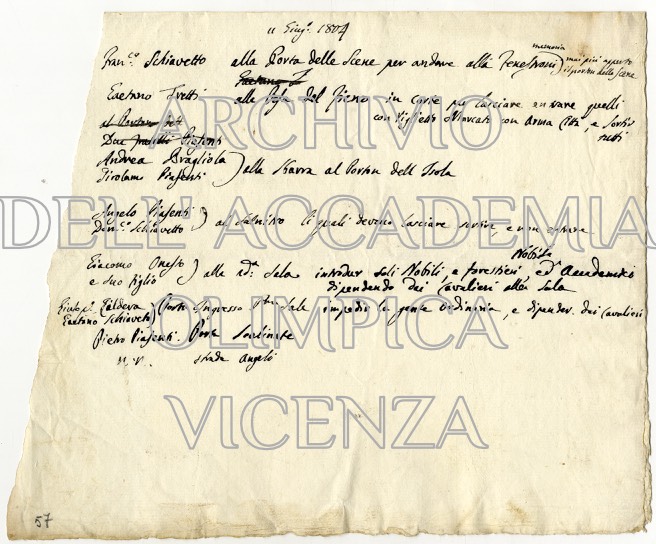 11 Giug.º 1804
Fran.co Schiavetto alla Porta delle Scene per andare alli Fenestroni) memoria mai più aperto il porton delle Scene
Gaetano Fretti alle Pesa del Fieno in corte per lasciare entrare quelli
con Viglietti Marcati con Arma Città, e sortir tutti
Due fratelli Piasenti
Andrea Bragliola
Girolamo Piasenti ) alla Sbarra al Porton dell'Isola
Angelo Piasenti
Dom.co Schiavetto ) al Salnitro li quali devono lasciare sortire, e non entrare
Giacomo Onesto
e suo figlio ) alle rd.e Sala introdur soli Nobili, e forestieri, ed Accademici Nobiltà
dipendendo dai Cavalieri alla Sala
Caldera
Gaetano Schiaveto ) Porta Ingresso Sale impedir la gente ordinaria, e dipender dai Cavalieri
Pietro Piasenti Porta
N. N. strada Angeli
57
ARCHIVIO
DELL'ACCADEMIA
OLIMPICA
VICENZA